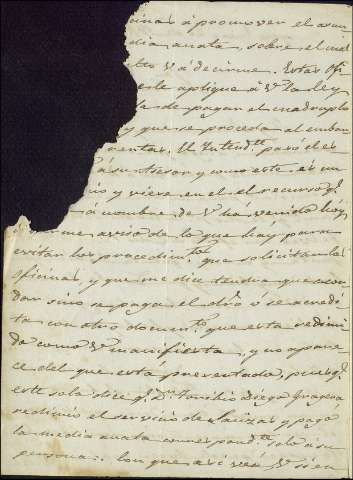 cinas á promover el asun
dia anata, sobre el cual
V á decirme. Estas Ofi
este aplique á V la ley
de pagar el cuadruplo
y que se proceda al embar
rentas. El Intend.te pasó el es
á su Asesor y como este es un
y viese en el el recurso q.e
á nombre de V há venido hoy
á darme aviso de lo que háy para
evitar los procedim.tos que solicitan las
oficinas, y que me dice tendra que acor
dar sino se paga el dro. ó se acredi
ta con otro docum.to que esta redimi
do como V manifiesta, y no apare
ce del que está presentado, pues q.e
este solo dice q.e D.n Toribio Diego
redimió el servicio de Lanzas y pagó
la media anata correspond.te solo á su
persona. Con que asi verá V si en